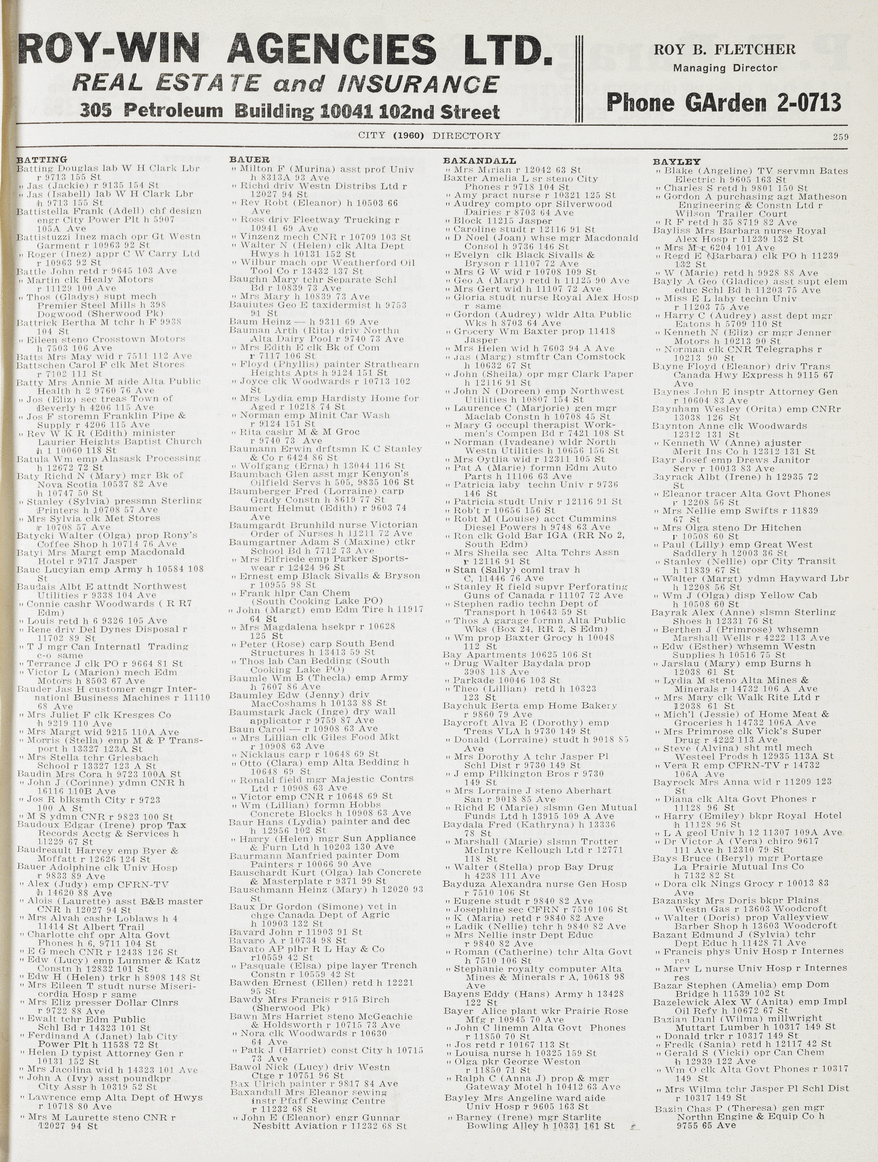 ROY-WIN AGENCIES LTD.
REAL ESTATE and INSURANCE
305 Petroleum Building 10041 102nd Street
ROY B. FLETCHER
Managing Director
Phone GArden 2-0713
CITY (1960) DIRECTORY
259
BATTING
Batting Douglas lab W H Clark Lbr
r 9713 155 St
" Jas (Jackie) r 9135 154 St
" Jas (Isabell) lab W H Clark Lbr
h 9713 155 St
Battistella Frank (Adell) chf design
engr City Power Plt h 5907
105A Ave
Battistuzzi Inez mach opr Gt Westn
Garment r 10963 92 St
" Roger (Inez) appr C W Carry Ltd
r 10963 92 St
Battle John retd r 9645 103 Ave
" Martin clk Healy Motors
r 11129 100 Ave
" Thos (Gladys) supt mech
Premier Steel Mills h 398
Dogwood (Sherwood Pk)
Battrick Bertha M tchr h F 9938
104 St
" Eileen steno Crosstown Motors
h 7503 106 Ave
Batts Mrs May wid r 7511 112 Ave
Battschen Carol F clk Met Stores
r 7102 111 St
Batty Mrs Annie M aide Alta Public
Health h 2 9760 76 Ave
" Jos (Eliz) sec treas Town of
Beverly h 4206 115 Ave
" Jos F storemn Franklin Pipe &
Supply r 4206 115 Ave
" Rev W K R (Edith) minister
Laurier Heights Baptist Church
h 1 10060 118 St
Batula Wm emp Alasask Processing
h 12672 72 St
Baty Richd N (Mary) mgr Bk of
Nova Scotia 10537 82 Ave
h 10747 50 St
" Stanley (Sylvia) pressmn Sterling
Printers h 10708 57 Ave
" Mrs Sylvia clk Met Stores
r 10708 57 Ave
Batycki Walter (Olga) prop Rony's
Coffee Shop h 10714 76 Ave
Batyi Mrs Margt emp Macdonald
Hotel r 9717 Jasper
Bauc Lucyian emp Army h 10584 108
St
Baudais Albt E attndt Northwest
Utilities r 9338 104 Ave
" Connie cashr Woodwards ( R R7
Edm)
" Louis retd h 6 9326 105 Ave
" Rene driv Del Dynes Disposal r
11702 89 St
" T J mgr Can Internatl Trading
c-o same
" Terrance J clk PO r 9664 81 St
" Victor L (Marion) mech Edm
Motors h 8503 67 Ave
Bauder Jas H customer engr Inter-
nationl Business Machines r 11110
68 Ave
" Mrs Juliet F clk Kresges Co
h 9219 110 Ave
" Mrs Margt wid 9215 110A Ave
" Morris (Stella) emp M & P Trans-
port h 13327 123A St
" Mrs Stella tchr Griesbach
School r 13327 123 A St
Baudin Mrs Cora h 9723 100A St
" John J (Corinne) ydmn CNR h
16116 110B Ave
" Jos R blksmth City r 9723
100 A St
" M S ydmn CNR r 9823 100 St
Baudoux Edgar (Irene) prop Tax
Records Acctg & Services h
11229 67 St
Baudreault Harvey emp Byer &
Moffatt r 12626 124 St
Bauer Adolphine clk Univ Hosp
r 9833 89 Ave
" Alex (Judy) emp CFRN-TV
h 14620 88 Ave
" Alois (Laurette) asst B&B master
CNR h 12027 94 St
" Mrs Alvah cashr Loblaws h 4
11414 St Albert Trail
" Charlotte chf opr Alta Govt
Phones h 6, 9711 104 St
" E G mech CNR r 12438 126 St
" Edw (Lucy) emp Lummer & Katz
Constn h 12832 101 St
" Edw H (Helen) trkr h 8908 148 St
" Mrs Eileen T studt nurse Miseri-
cordia Hosp r same
" Mrs Eliz presser Dollar Clnrs
r 9722 88 Ave
" Ewalt tchr Edm Public
Schl Bd r 14323 101 St
" Ferdinand A (Janet) lab City
Power Plt h 11538 72 St
" Helen D typist Attorney Gen r
10131 152 St
" Mrs Jacolina wid h 14323 101 Ave
" John A (Ivy) asst poundkpr
City Assr h 10319 52 St
" Lawrence emp Alta Dept of Hwys
r 10718 80 Ave
" Mrs M Laurette steno CNR r
12027 94 St
BAUER
" Milton F (Murina) asst prof Univ
h 8313A 93 Ave
" Richd driv Westn Distribs Ltd r
12027 94 St
" Rev Robt (Eleanor) h 10503 66
Ave
" Ross driv Fleetway Trucking r
10941 69 Ave
" Vinzenz mech CNR r 10709 103 St
" Walter N (Helen) clk Alta Dept
Hwys h 10131 152 St
" Wilbur mach opr Weatherford Oil
Tool Co r 13432 137 St
Baughn Mary tchr Separate Schl
Bd r 10839 73 Ave
" Mrs Mary h 10839 73 Ave
Bauiutes Geo E taxidermist h 9753
91 St
Baum Heinz — h 9311 69 Ave
Bauman Arth (Rita) driv Northn
Alta Dairy Pool r 9740 73 Ave
" Mrs Edith E clk Bk of Com
r 7117 106 St
" Floyd (Phyllis) painter Strathearn
Heights Apts h 9124 151 St
" Joyce clk Woodwards r 10713 102
St
" Mrs Lydia emp Hardisty Home for
Aged r 10218 74 St
" Norman emp Minit Car Wash
r 9124 151 St
" Rita cashr M & M Groc
r 9740 73 Ave
Baumann Erwin drftsmn K C Stanley
& Co r 6424 86 St
" Wolfgang (Erna) h 13044 116 St
Baumbach Glen asst mgr Kenyon's
Oilfield Servs h 505, 9835 106 St
Baumberger Fred (Lorraine) carp
Grady Constn h 8619 77 St
Baumert Helmut (Edith) r 9603 74
Ave
Baumgardt Brunhild nurse Victorian
Order of Nurses h 11211 72 Ave
Baumgartner Adam S (Maxine) ctkr
School Bd h 7712 73 Ave
" Mrs Elfriede emp Parker Sports-
wear r 12424 96 St
" Ernest emp Black Sivalls & Bryson
r 10955 98 St
" Frank hlpr Can Chem
(South Cooking Lake PO)
" John (Margt) emp Edm Tire h 11917
64 St
" Mrs Magdalena hsekpr r 10628
125 St
" Peter (Rose) carp South Bend
Structures h 13413 59 St
" Thos lab Can Bedding (South
Cooking Lake PO)
Baumle Wm B (Thecla) emp Army
h 7607 86 Ave
Baumley Edw (Jenny) driv
MacCoshams h 10133 88 St
Baumstark Jack (Inge) dry wall
applicator r 9759 87 Ave
Baun Carol — r 10908 63 Ave
" Mrs Lillian clk Giles Food Mkt
r 10908 63 Ave
" Nicklaus carp r 10648 69 St
" Otto (Clara) emp Alta Bedding h
10648 69 St
" Ronald field mgr Majestic Contrs
Ltd r 10908 63 Ave
" Victor emp CNR r 10648 69 St
" Wm (Lillian) formn Hobbs
Concrete Blocks h 10908 63 Ave
Baur Hans (Lydia) painter and dec
h 12956 102 St
" Harry (Helen) mgr Sun Appliance
& Furn Ltd h 10203 130 Ave
Baurmann Manfried painter Dom
Painters r 10066 90 Ave
Bauschardt Kurt (Olga) lab Concrete
& Masterplate r 9371 99 St
Bauschmann Heinz (Mary) h 12020 93
St
Baux Dr Gordon (Simone) vet in
chge Canada Dept of Agric
h 10903 132 St
Bavard John r 11903 91 St
Bavaro A r 10734 98 St
Bavato AP plbr R L Hay & Co
r10559 42 St
" Pasquale (Elsa) pipe layer Trench
Constn r 10559 42 St
Bawden Ernest (Ellen) retd h 12221
95 St
Bawdy Mrs Francis r 915 Birch
(Sherwood Pk)
Bawn Mrs Harriet steno McGeachie
& Holdsworth r 10715 73 Ave
" Nora clk Woodwards r 10630
64 Ave
" Patk J (Harriet) const City h 10715
73 Ave
Bawol Nick (Lucy) driv Westn
Ctge r 10751 96 St
Bax Ulrich painter r 9817 84 Ave
Baxandall Mrs Eleanor sewing
instr Pfaff Sewing Centre
r 11232 68 St
" John E (Eleanor) engr Gunnar
Nesbitt Aviation r 11232 68 St
BAXANDALL
" Mrs Mirian r 12042 63 St
Baxter Amelia L sr steno City
Phones r 9718 104 St
" Amy pract nurse r 10321 125 St
" Audrey compto opr Silverwood
Dairies r 8703 64 Ave
" Block 11215 Jasper
" Caroline studt r 12116 91 St
" D Noel (Joan) whse mgr Macdonald
Consol h 9736 146 St
" Evelyn clk Black Sivalls &
Bryson r 11107 72 Ave
" Mrs G W wid r 10708 109 St
" Geo A (Mary) retd h 11125 90 Ave
" Mrs Gert wid h 11107 72 Ave
" Gloria studt nurse Royal Alex Hosp
r same
" Gordon (Audrey) wldr Alta Public
Wks h 8703 64 Ave
" Grocery Wm Baxter prop 11418
Jasper
" Mrs Helen wid h 7603 94 A Ave
" Jas (Marg) stmftr Can Comstock
h 10632 67 St
" John (Sheila) opr mgr Clark Paper
h 12116 91 St
" John N (Doreen) emp Northwest
Utilities h 10807 154 St
" Laurence C (Marjorie) gen mgr
Maclab Constn h 10708 45 St
" Mary G occupl therapist Work-
men's Compen Bd r 7421 108 St
" Norman (Ivadean) wldr North
Westn Utilities h 10656 156 St
" Pat A (Marie) formn Edm Auto
Parts h 11106 63 Ave
" Patricia laby techn Univ r 9736
146 St
" Patricia studt Univ r 12116 91 St
" Rob't r 10656 156 St
" Robt M (Louise) acct Cummins
Diesel Powers h 9748 63 Ave
" Ron clk Gold Bar IGA (RR No 2,
South Edm)
" Mrs Sheila sec Alta Tchrs Assn
r 12116 91 St
" Stan (Sally) coml trav h
C, 11446 76 Ave
" Stanley R field supvr Perforating
Guns of Canada r 11107 72 Ave
" Stephen radio techn Dept of
Transport h 10643 59 St
" Thos A garage formn Alta Public
Wks (Box 24, RR 2, S Edm)
" Wm prop Baxter Grocy h 10048
112 St
Bay Apartments 10625 106 St
" Drug Walter Baydala prop
3908 118 Ave
" Parkade 10046 103 St
" Theo (Lillian) retd h 10323
123 St
Baychuk Berta emp Home Bakery
r 9860 79 Ave
Baycroft Alva E (Dorothy) emp
Treas VLA h 9730 149 St
" Donald (Lorraine) studt h 9018 85
Ave
" Mrs Dorothy A tchr Jasper Pl
Schl Dist r 9730 149 St
" J emp Pilkington Bros r 9730
149 St
" Mrs Lorraine J steno Aberhart
San r 9018 85 Ave
" Richd E (Marie) slsmn Gen Mutual
Funds Ltd h 13915 109 A Ave
Baydala Fred (Kathryna) h 13336
78 St
" Marshall (Marie) slsmn Trotter
McIntyre Kellough Ltd r 12771
118 St
" Walter (Stella) prop Bay Drug
h 4238 111 Ave
Bayduza Alexandra nurse Gen Hosp
r 7510 106 St
" Eugene studt r 9840 82 Ave
" Josephine sec CFRN r 7510 106 St
" K (Maria) retd r 9840 82 Ave
" Ladik (Nellie) tchr h 9840 82 Ave
" Mrs Nellie instr Dept Educ
r 9840 82 Ave
" Roman (Catherine) tchr Alta Govt
h 7510 106 St
" Stephanie royalty computer Alta
Mines & Minerals r A, 10618 98
Ave
Bayens Eddy (Hans) Army h 13428
122 St
Bayer Alice plant wkr Prairie Rose
Mfg r 10945 70 Ave
" John C linemn Alta Govt Phones
r 11850 70 St
" Jos retd r 10167 113 St
" Louisa nurse h 10325 159 St
" Olga pkr George Weston
r 11850 71 St
" Ralph C (Anna J) prop & mgr
Gateway Motel h 10412 63 Ave
Bayley Mrs Angeline ward aide
Univ Hosp r 9605 163 St
" Barney (Irene) mgr Starlite
Bowling Alley h 10331 161 St
BAYLEY
" Blake (Angeline) TV servmn Bates
Electric h 9605 163 St
" Charles S retd h 9801 150 St
" Gordon A purchasing agt Matheson
Engineering & Constn Ltd r
Wilson Trailer Court
" R F retd h 35 8719 82 Ave
Bayliss Mrs Barbara nurse Royal
Alex Hosp r 11239 132 St
" Mrs M r 6204 101 Ave
" Regd E (Barbara) clk PO h 11239
132 St
" W (Marie) retd h 9928 88 Ave
Bayly A Geo (Gladice) asst supt elem
educ Schl Bd h 11203 75 Ave
" Miss E L laby techn Univ
r 11203 75 Ave
" Harry C (Audrey) asst dept mgr
Eatons h 5709 110 St
" Kenneth N (Eliz) cr mgr Jenner
Motors h 10213 90 St
" Norman clk CNR Telegraphs r
10213 90 St
Bayne Floyd (Eleanor) driv Trans
Canada Hwy Express h 9115 67
Ave
Baynes John E insptr Attorney Gen
r 10604 83 Ave
Baynham Wesley (Orita) emp CNRr
13038 126 St
Baynton Anne clk Woodwards
12312 131 St
" Kenneth W (Anne) ajuster
Merit Ins Co h 12312 131 St
Bayr Josef emp Drews Janitor
Serv r 10013 83 Ave
Bayrack Albt (Irene) h 12935 72
St
" Eleanor tracer Alta Govt Phones
r 12208 56 St
" Mrs Nellie emp Swifts r 11839
67 St
" Mrs Olga steno Dr Hitchen
r 10508 60 St
" Paul (Lilly) emp Great West
Saddlery h 12003 36 St
" Stanley (Nellie) opr City Transit
h 11839 67 St
" Walter (Margt) ydmn Hayward Lbr
h 12208 56 St
" Wm J (Olga) disp Yellow Cab
h 10508 60 St
Bayrak Alex (Anne) slsmn Sterling
Shoes h 12331 76 St
" Berthen J (Primrose) whsemn
Marshall Wells r 4222 113 Ave
" Edw (Esther) whsemn Westn
Supplies h 10516 75 St
" Jarslau (Mary) emp Burns h
12038 61 St
" Lydia M steno Alta Mines &
Minerals r 14732 106 A Ave
" Mrs Mary clk Walk Rite Ltd r
12038 61 St
" Mich'l (Jessie) of Home Meat &
Groceries h 14732 106A Ave
" Mrs Primrose clk Vick's Super
Drug r 4222 113 Ave
" Steve (Alvina) sht mtl mech
Westeel Prods h 12935 113A St
" Vera R emp CFRN-TV r 14732
106A Ave
Bayrock Mrs Anna wid r 11209 123
St
" Diana clk Alta Govt Phones r
11128 96 St
" Harry (Emiley) bkpr Royal Hotel
h 11128 96 St
" L A geol Univ h 12 11307 109A Ave
" Dr Victor A (Vera) chiro 9617
111 Ave h 12310 79 St
Bays Bruce (Beryl) mgr Portage
La Prairie Mutual Ins Co
h 7132 82 St
" Dora clk Nings Grocy r 10013 83
Ave
Bazansky Mrs Doris bkpr Plains
Westn Gas r 13603 Woodcroft
" Walter (Doris) prop Valleyview
Barber Shop h 13603 Woodcroft
Bazant Edmund J (Sylvia) tchr
Dept Educ h 11428 71 Ave
" Francis phys Univ Hosp r Internes
res
" Marv L nurse Univ Hosp r Internes
res
Bazar Stephen (Amelia) emp Dom
Bridge h 11539 102 St
Bazelewick Alex W (Anita) emp Impl
Oil Refy h 10672 67 St
Bazian Danl (Wilma) millwright
Muttart Lumber h 10317 149 St
" Donald trkr r 10317 149 St
" Fredk (Sania) retd h 12117 42 St
" Gerald S (Vicki) opr Can Chem
h 12939 122 Ave
" Wm O clk Alta Govt Phones r 10317
149 St
" Mrs Wilma tchr Jasper Pl Schl Dist
r 10317 149 St
Bazin Chas P (Theresa) gen mgr
Northn Engine & Equip Co h
9755 65 Ave